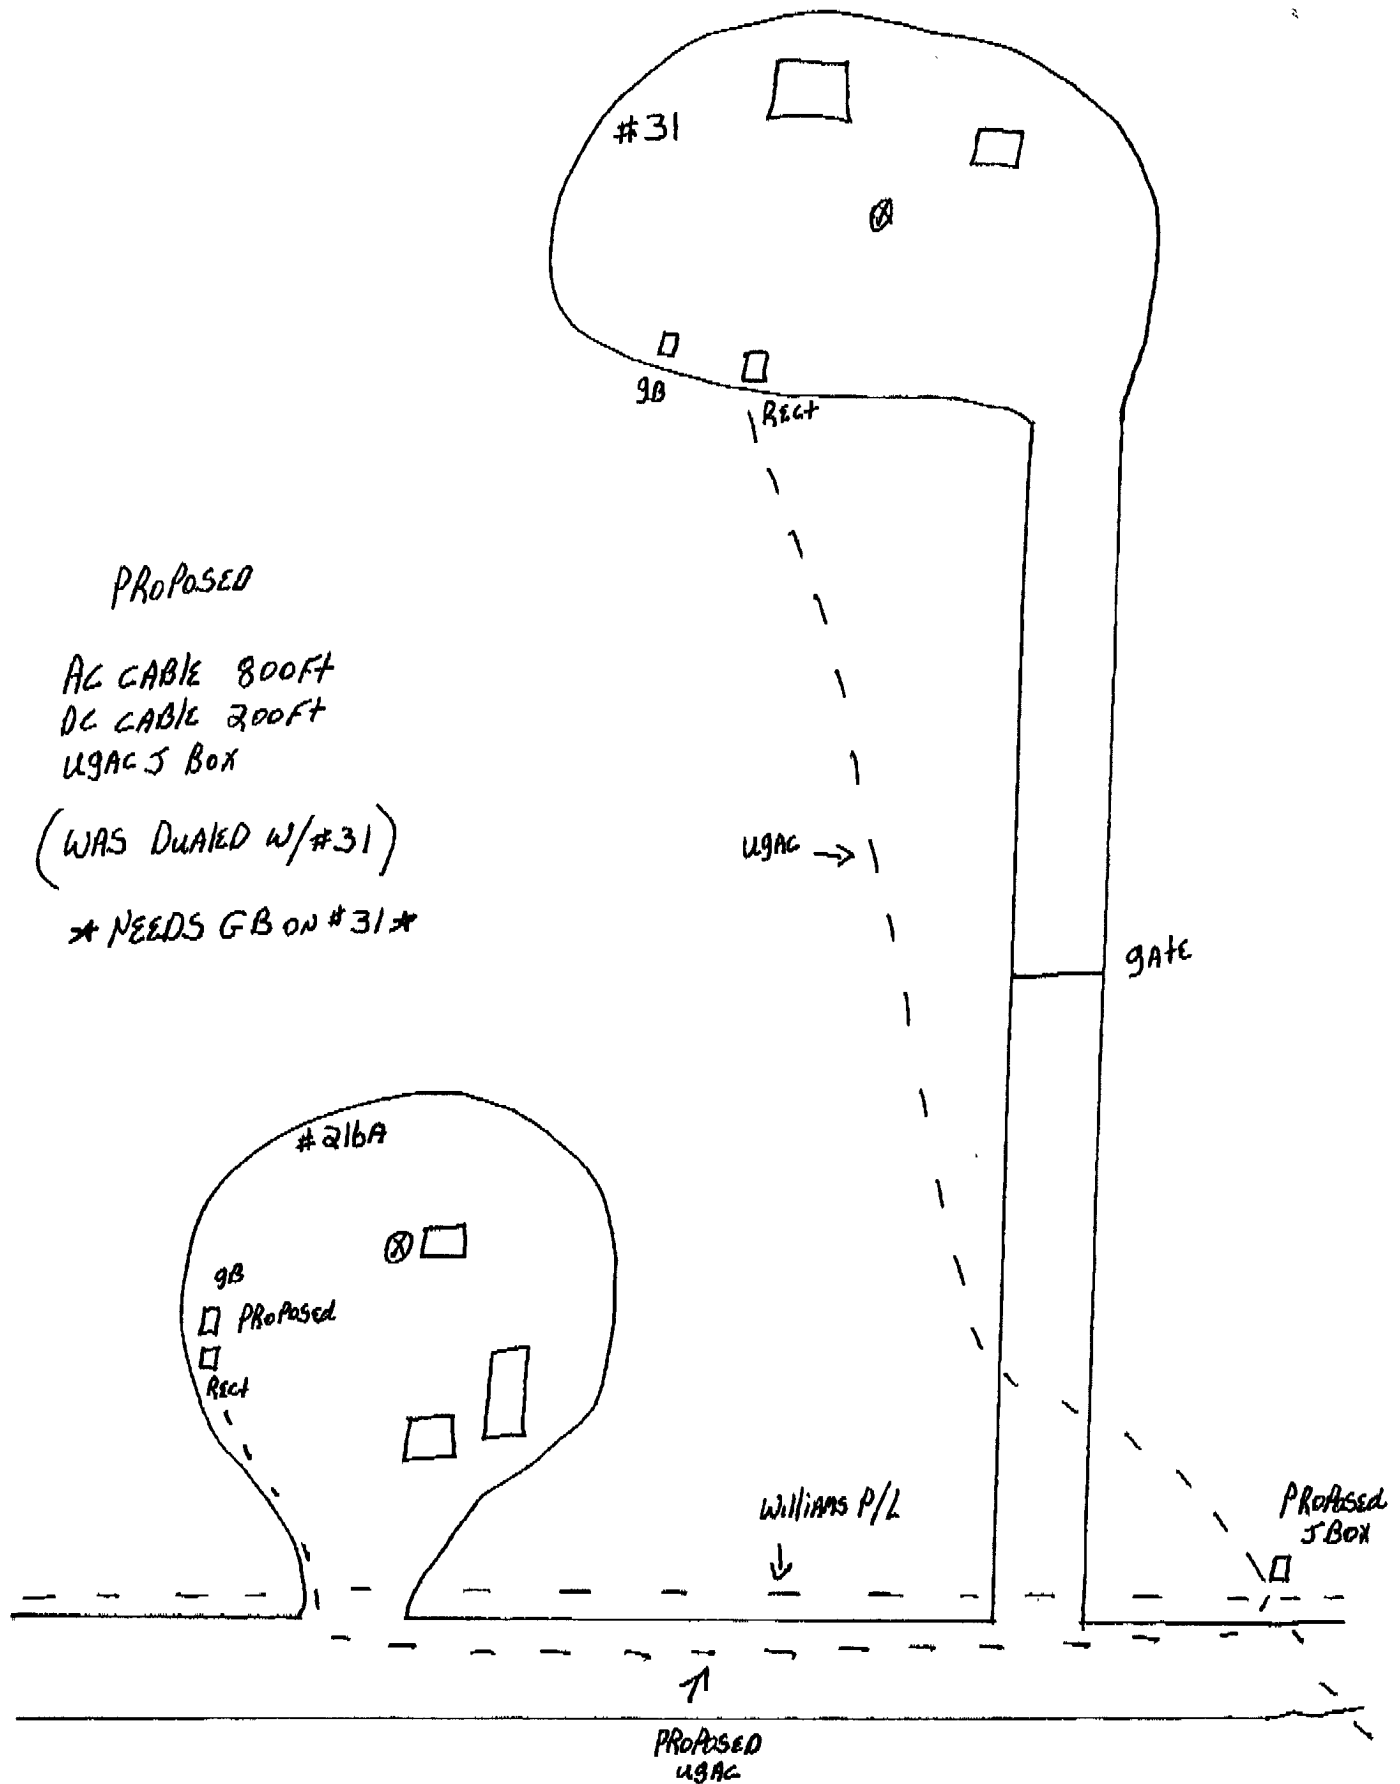 #31
gB
RECt
PROPOSED
AC CABlE 800Ft
DC CABlE 200Ft
UgAC J BOX
(WAS DUAlED W/#31)
* NEEDS GB ON #31 *
UgAC
gAtE
#216A
gB
PROPOSEd
RECt
WilliAMS P/L
PROPOSEd
J BOX
PROPOSED
UgAC